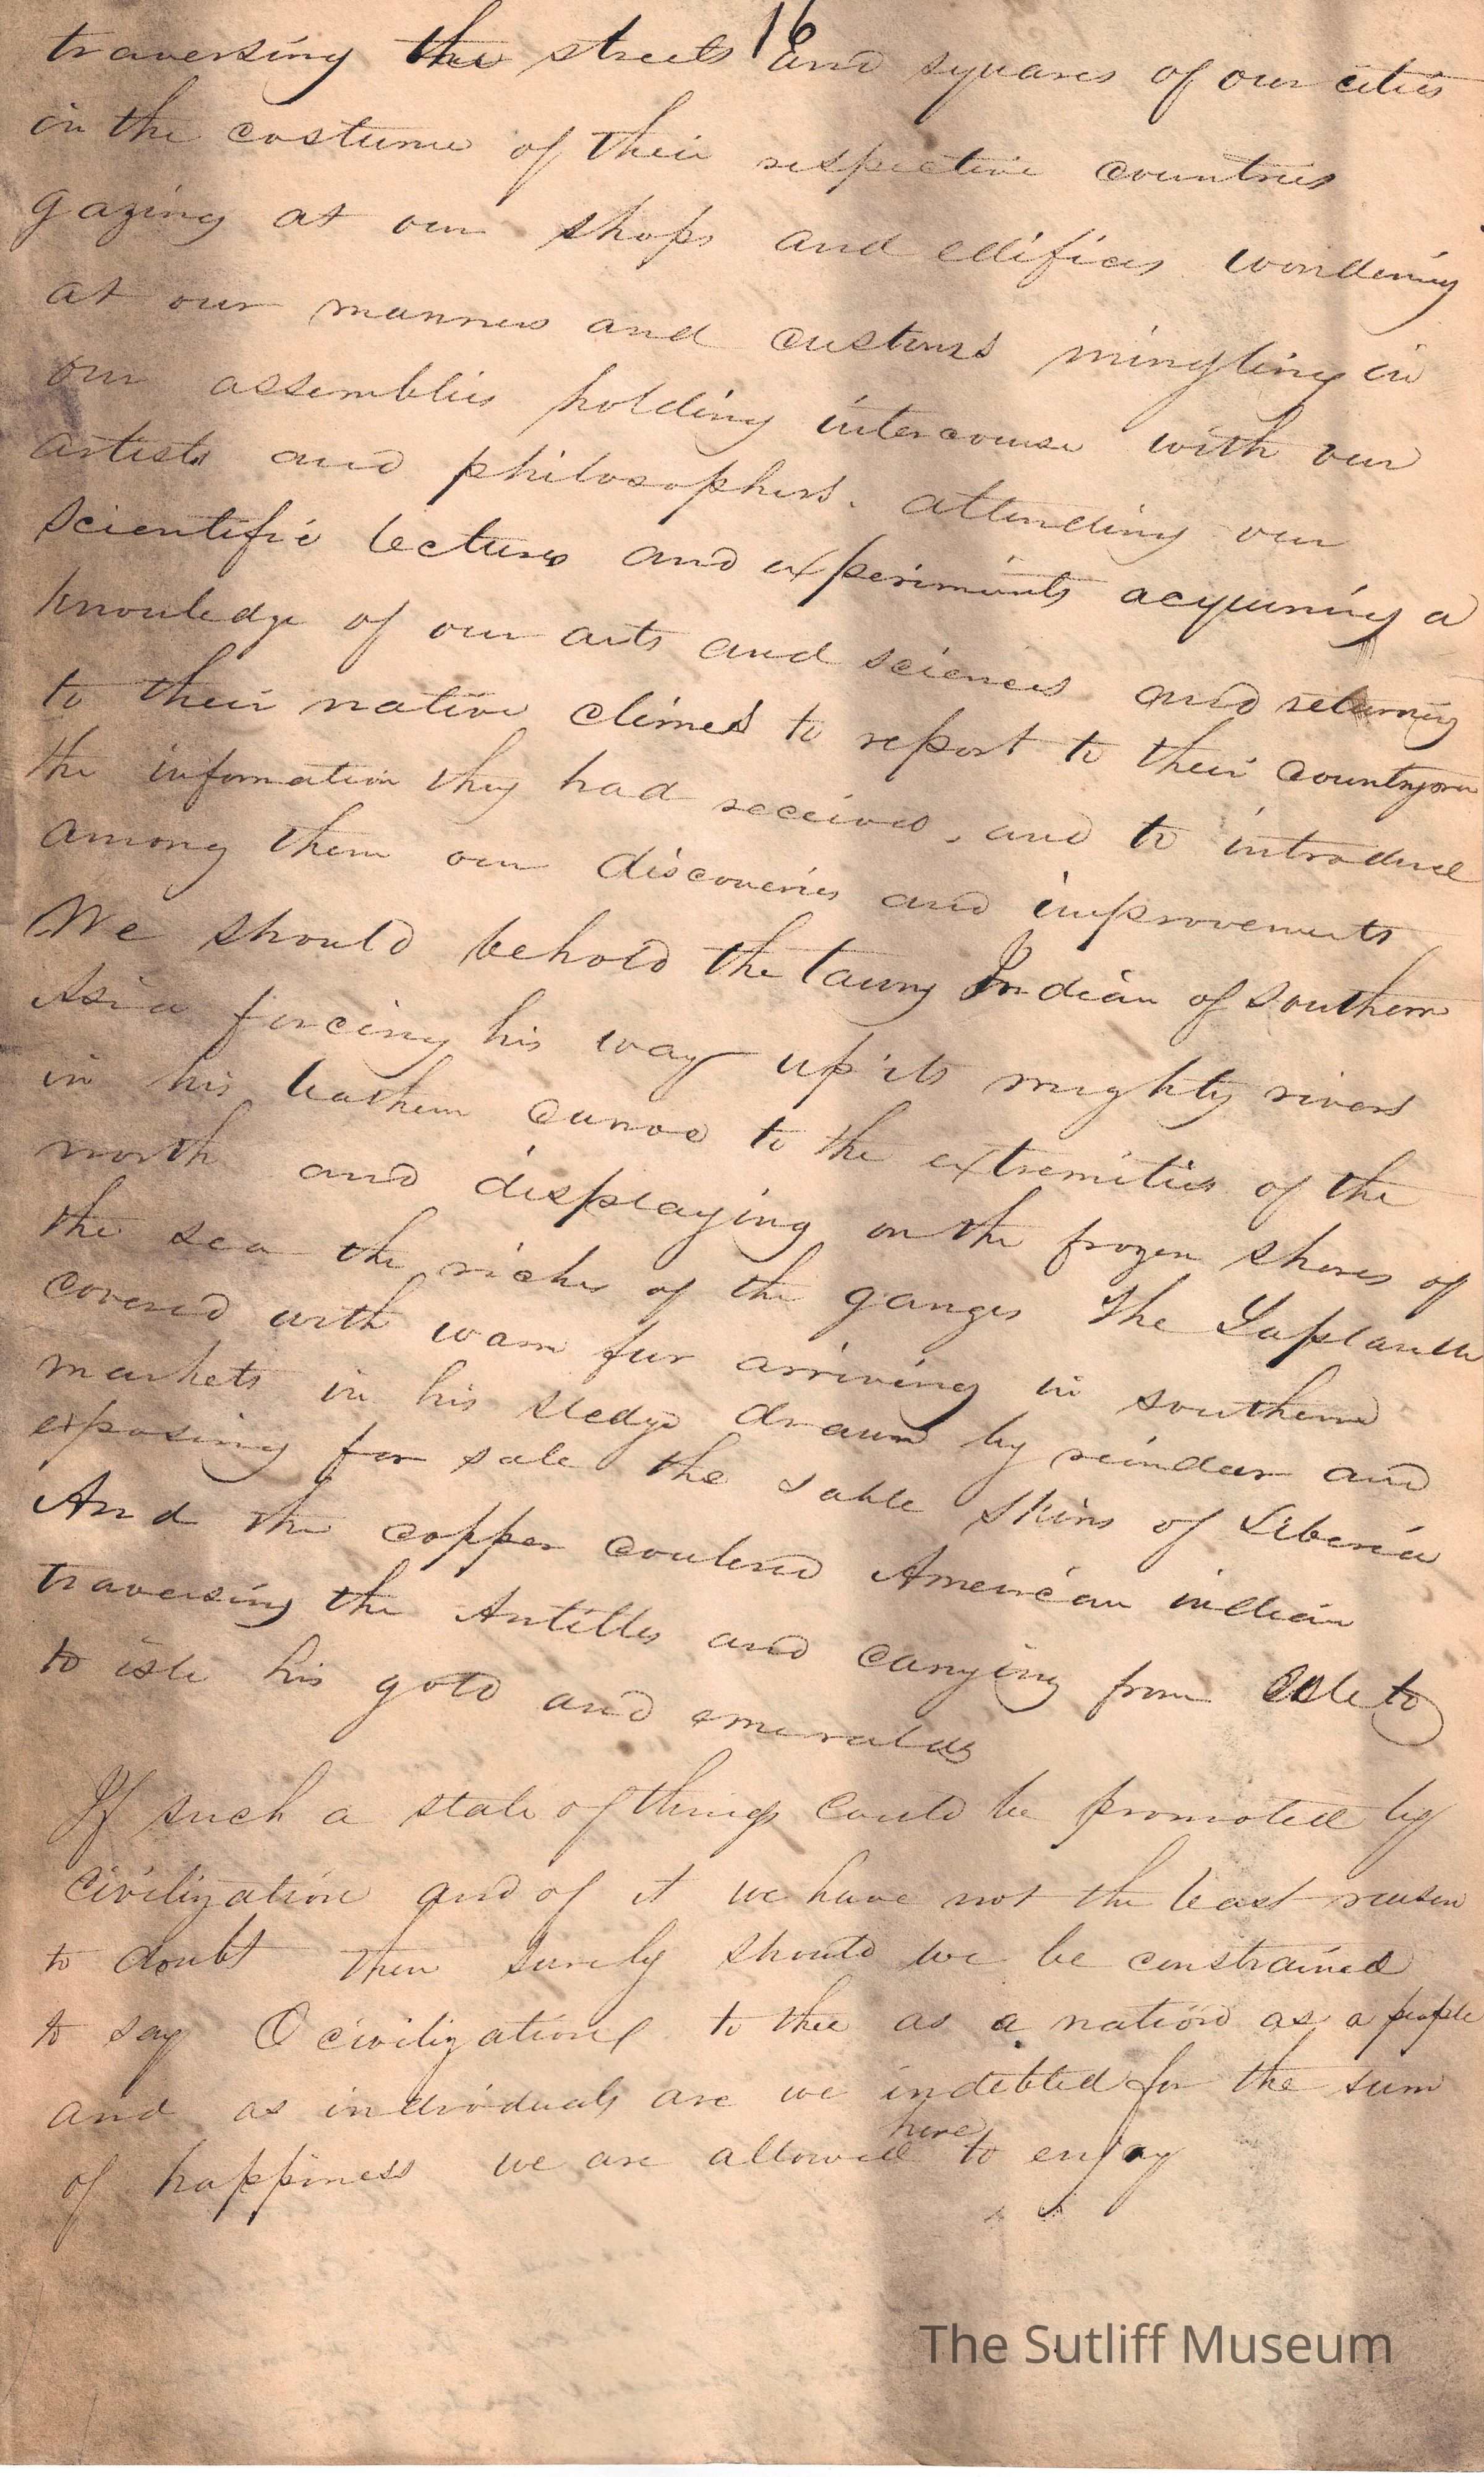 16
traversing the streets and squares of our cities
in the costume of their respective countries
gazing at our shops and edifices wondering
at our manners and customs mingling in
our assemblies holding intercourse with our
artists and philosophers. attending our
scientific lectures and experiments acquiring a
knowledge of our arts and sciences and returning
to their native climes to report to their countrymen
the information they had received, and to introduce
among them our discoveries and improvements
We should behold the tawny Indian of southern
Asia forcing his way up its mighty rivers
in his leathern canoe to the extremities of the
north and displaying on the frozen shores of
the sea the riches of the ganges The Laplander
covered with warm fur arriving in southern
markets in his sledge drawn by reindeer and
exposing for sale the sable skins of Siberia
And the copper couler'd American indian
traversing the Antilles and carrying from Isle to
to isle his gold and emeralds
If such a state of things could be promoted by
civilization and of it we have not the least reason
to doubt then surely should we be constrained
to say O civilization to thee as a nation as a people
and as individuals are we indebted for the sum
of happiness we are allowed here to enjoy
The Sutliff Museum